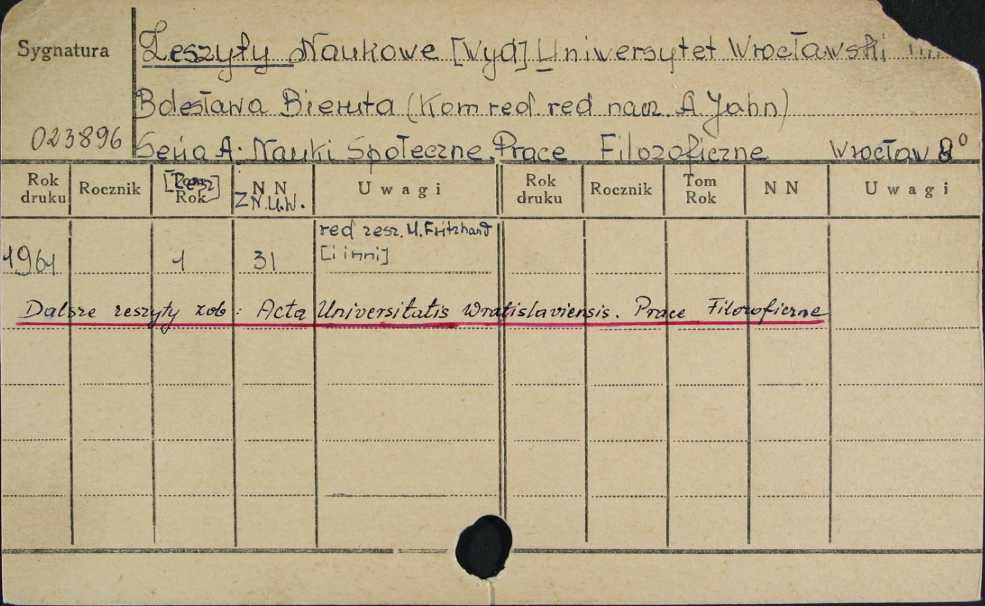 Sygnatura
Zeszyty Naukowe [Wyd] Uniwersytet Wrocławski im.
Bolesława Bieruta (Kom red. red nacz. A Jahn)
023896 Seria A: Nauki Społeczne. Prace Filozoficzne Wrocław 8°
Rok druku Rocznik Tom Rok [Zesz] N N Z.N.U.W. Uwagi Rok druku Rocznik Tom Rok N N Uwagi
1961 1 31 red zesz. M. Fritzhand
[i inni]
Dalsze zeszyty zob: Acta Universitatis Wratislaviensis. Prace Filozoficzne